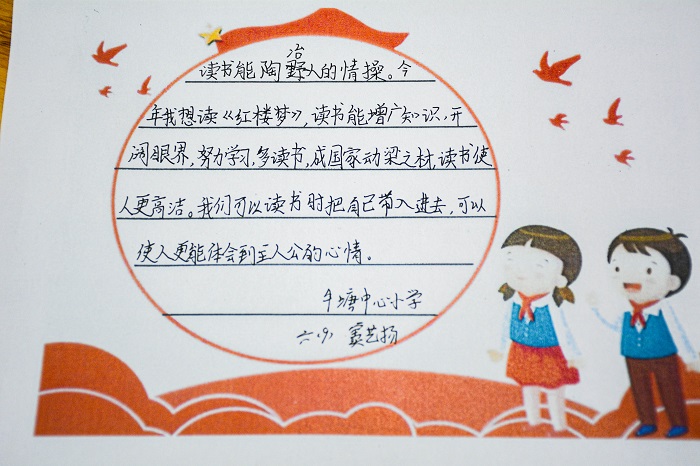 读书能陶冶人的情操。今
年我想读《红楼梦》,读书能增广知识,开
阔眼界,努力学习,多读书,成国家动梁之材,读书使
人更高洁。我们可以读书时把自己带入进去,可以
使人更能体会到主人公的心情。
牛塘中心小学
六(9) 窦艺扬